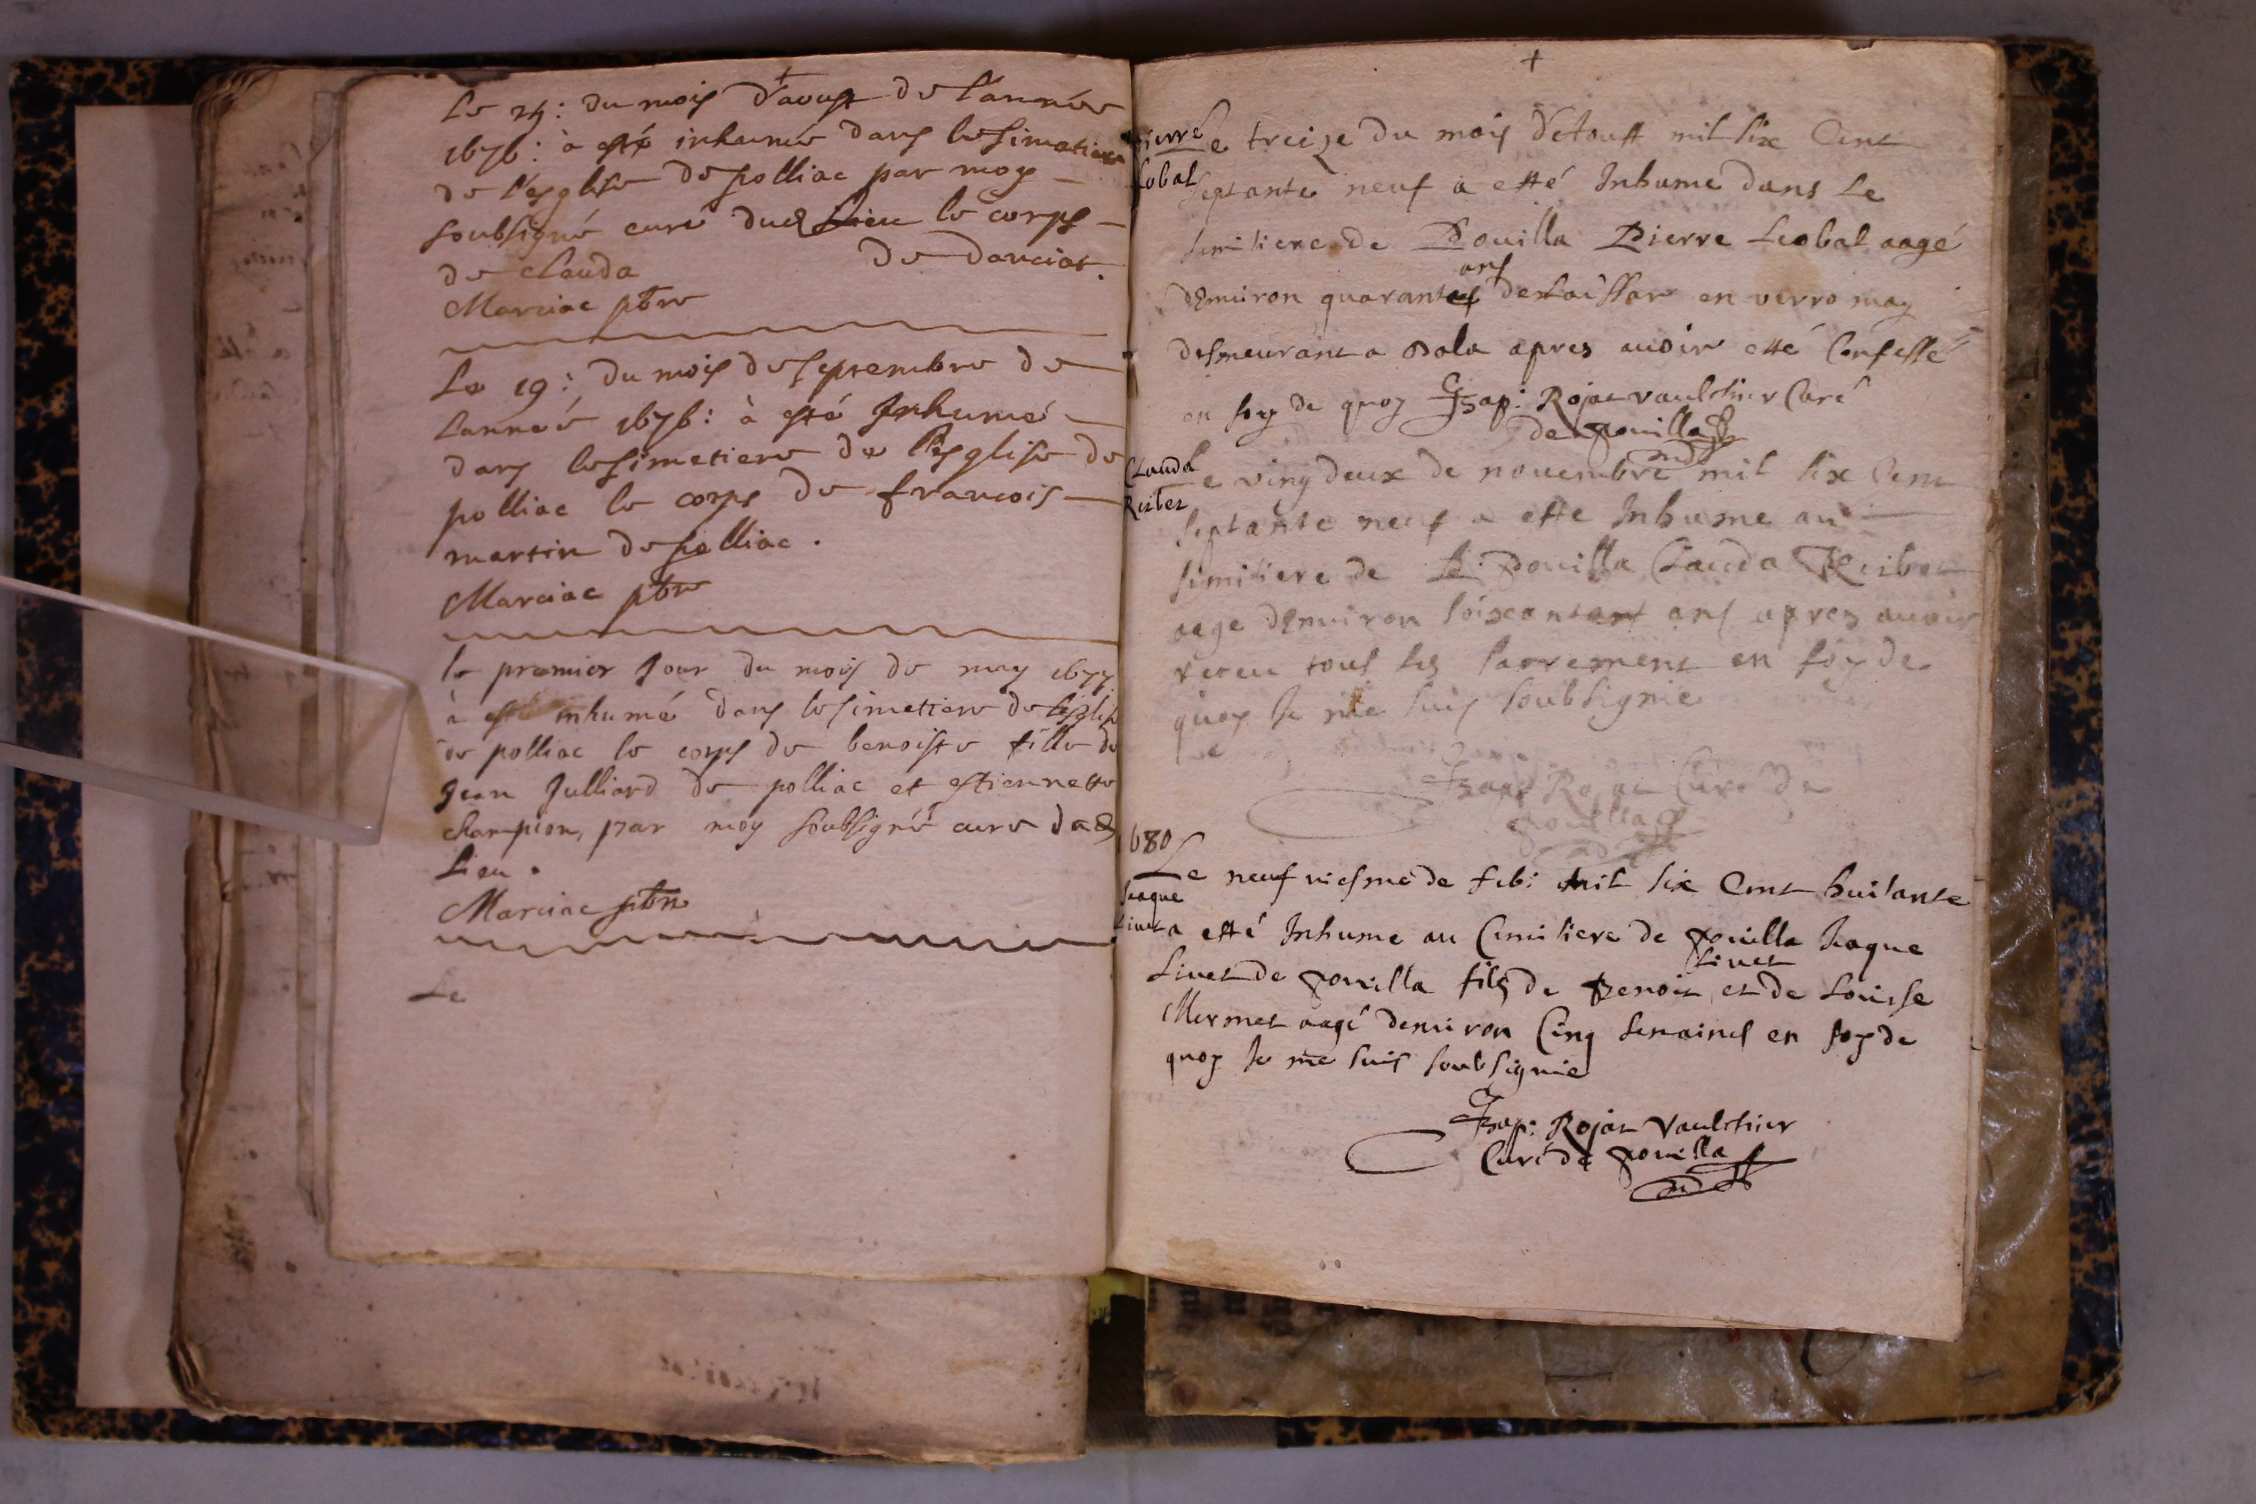 +
Le 24: du mois d'aoust de l'année
1676: à esté inhumée dans le simetiere
de l'esglise de polliac par moy
soubsigné curé dud lieu le corps
de Clauda de darciat.
Marciac pbre
Le 19: du mois de septembre de
l'année 1676: à esté Inhumé
dans le simetiere de l'esglise de
polliac le corps de francois
martin de polliac.
Marciac pbre
le premier Jour du mois de may 1677
à esté inhumé dans le simetiere de l'esglise
de polliac le corps de benoiste fille de
Jean Julliard de polliac et estiennette
champion, par moy soubsigné curé dud
Lieu.
Marciac pbre
Le
+
pierre
Le treize du mois d'etoust mil six Cent
septante neuf a etté Inhume dans Le
simitiere de Pouilla Pierre aagé
d'Enuiron quarante ans en verromay
desmeurant a apres auoir etté Confessé
en foy de quoy Rojat vaulchier Curé
de pouilla
Clauda
Ribet
Le vingdeux de nouembre mil six Cent
septante neuf a etté Inhume au
simitiere de pouilla Clauda Ribet
aage d'Enuiron soixantant ans apres auoir
receu tous les sacrement en foy de
quoy Je me suis soubsignie
Rojat Curé de
pouilla
1680
Jaque
Liuet
Le neufviesme de feb: mil six Cent huitante
a etté Inhume au Cimitiere de pouilla Jaque
Liuet de pouilla fils de Benoit Liuet et de Louisse
Mermet aagé denuiron Cinq semaines en foy de
quoy Je me suis soubsignie
Rojat Vaulchier
Curé de pouilla